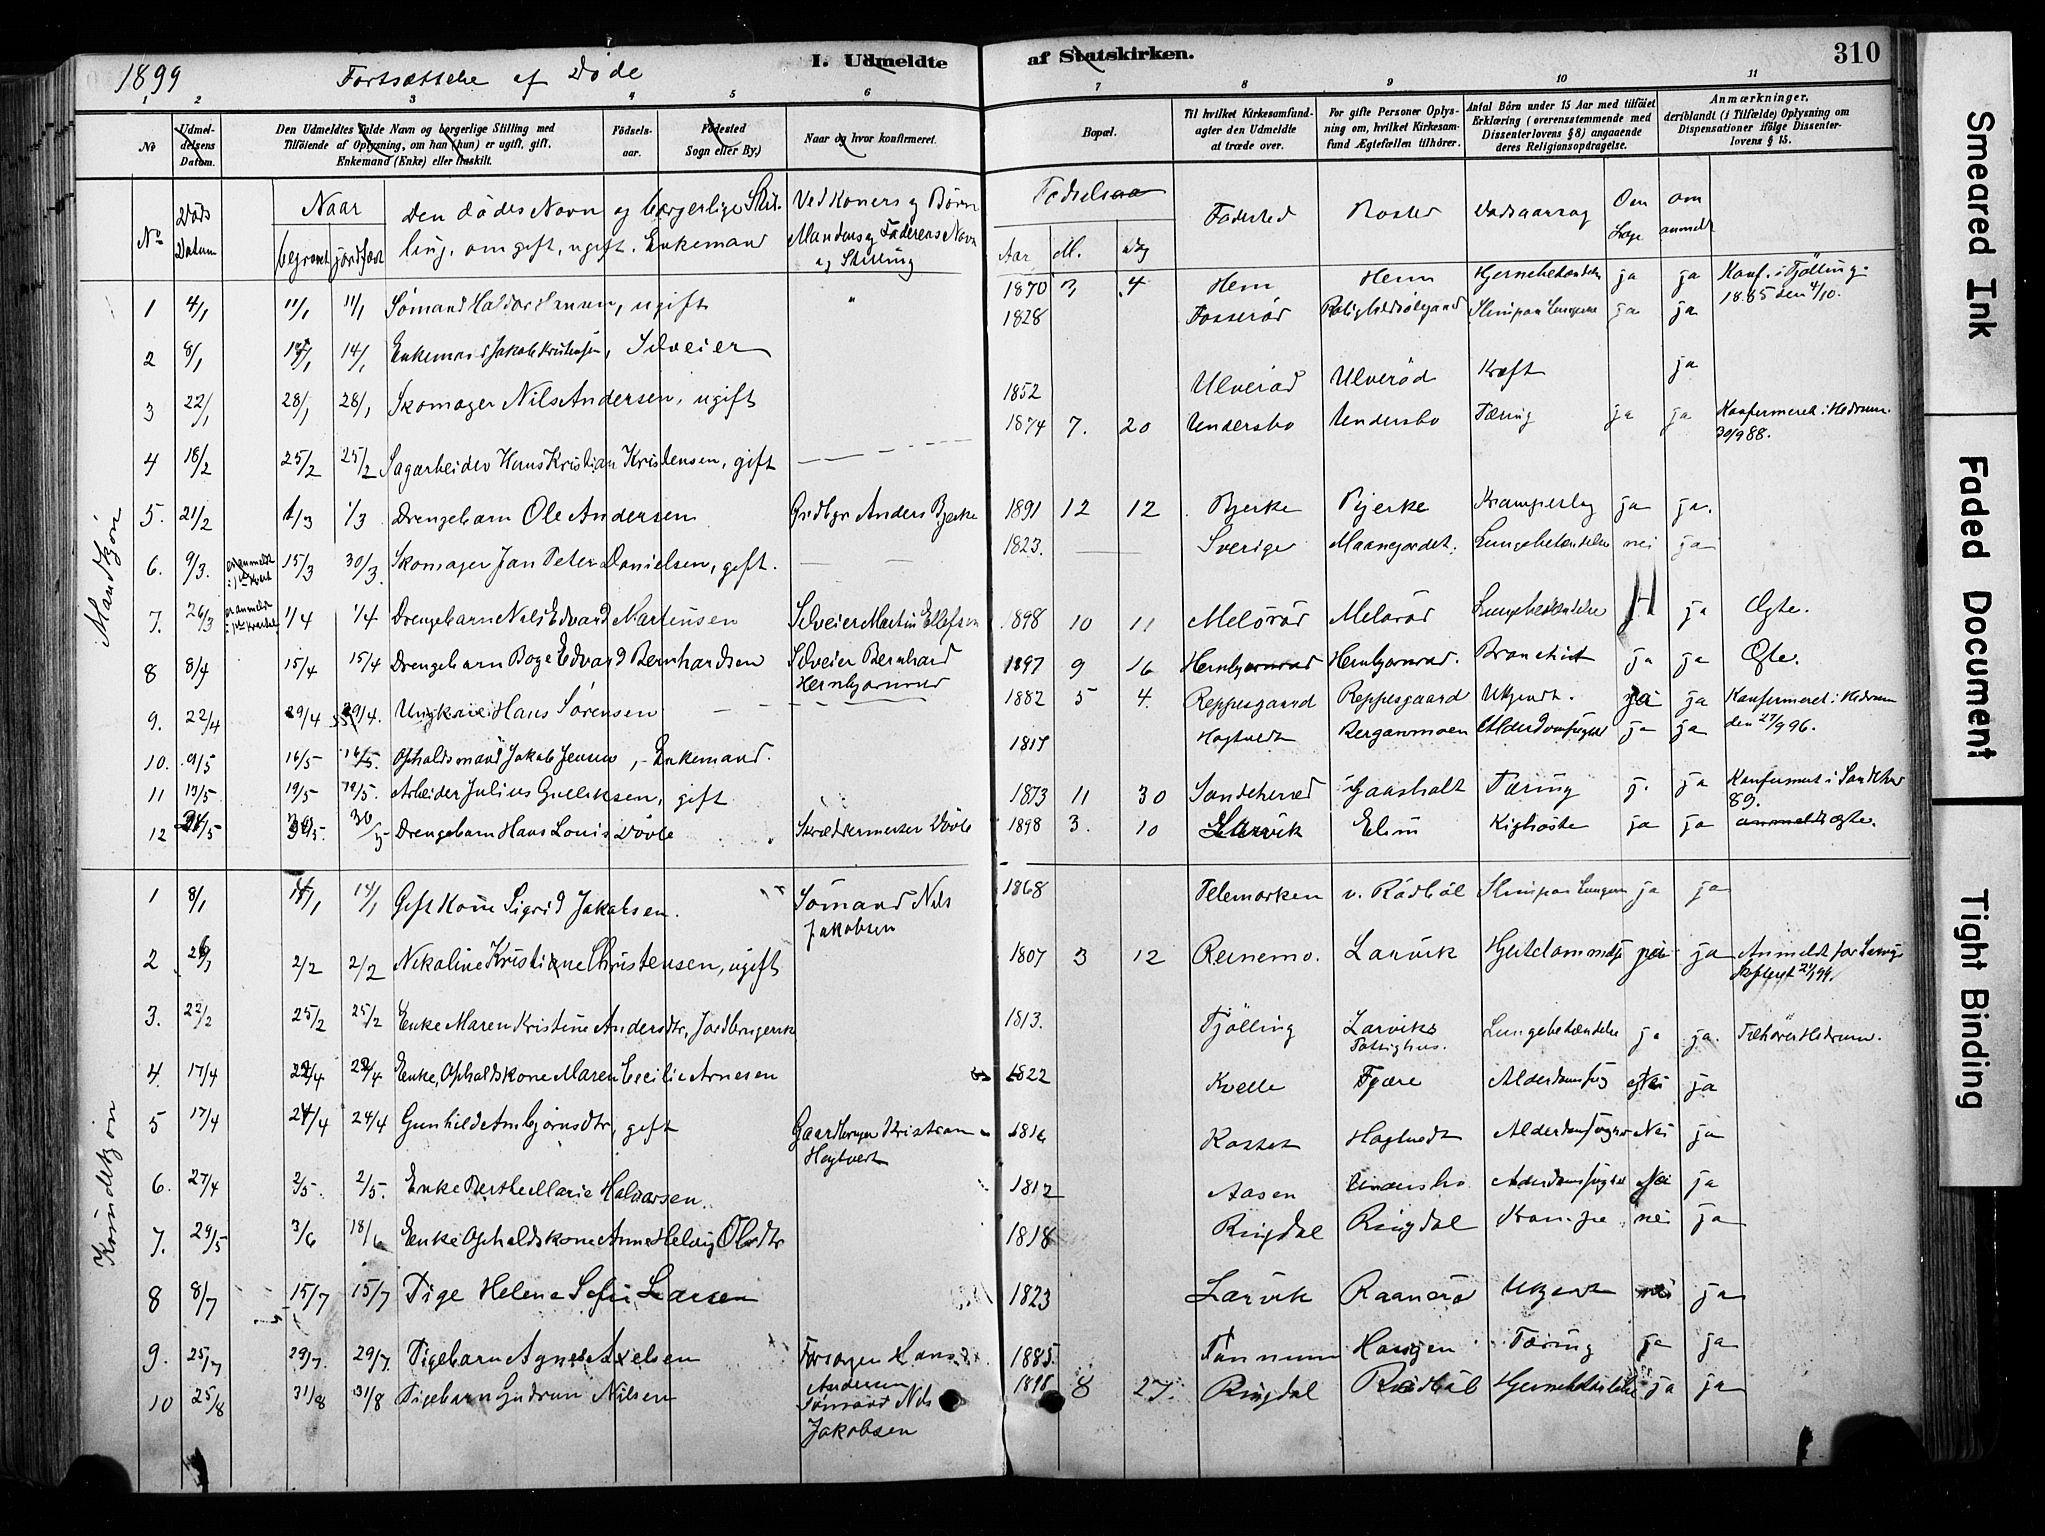 1899 Fortsættelse af Døde
I. Udmeldte af Statskirken. 310
1 2 3 4 5 6 7 8 9 10 11
No
Udmeldelsens Datum.
Den Udmeldtes fulde Navn og borgerlige Stilling med Tilføiende af Oplysning, om han (hun) er ugift, gift, Enkemand (Enke) eller fraskilt.
Fødselsaar.
Fødested Sogn eller By.)
Naar og hvor konfirmeret.
Bopæl.
Til hvilket Kirkesamfund agter den Udmeldte at træde over.
For gifte Personer Oplysning om, hvilket Kirkesamfund Ægtefællen tilhører.
Antal Börn under 15 Aar med tilføiet Erklæring (overensstemmende med Dissenterlovens § 8) angaaende deres Religionsopdragelse.
Anmærkninger, deriblandt (i Tilfælde) Oplysning om Dispensationer ifølge Dissenterlovens § 15.
No Døds Datum Naar begravet jordfæst
Den dødes Navn og borgerlige Stilling, om gift, ugift, Enkemand
Ved Koners og Børn Mandens og Faderens Navn og Stilling
Fødselsaa Aar M. Dag
Fødested Bosted Dødsaarsag Om Læge om anmeldt
Mandkjøn
1 4/1 11/1 11/1 Sømand Haldor Hansen, ugift " 1870 3 4 Hem Hem Hjernebetændelse ja ja Konf. i Tjölling 1885 den 4/10.
2 8/1 14/1 14/1 Enkemand Jakob Kristensen, Selveier 1828 Fosserød ja ja
3 22/1 28/1 28/1 Skomager Nils Andersen, ugift 1852 Ulverød Ulverød Kræft ja
4 18/2 25/2 25/2 Sagarbeider Hans Kristian Kristensen, gift 1874 7. 20 Undersbo Undersbo Tæring ja ja Konfirmeret i Hedrum 30/9 88.
5. 21/2 1/3 1/3 Drengebarn Ole Andersen Grdbgr Anders Bjerke 1891 12 12 Bjerke Bjerke Krampeslag ja ja.
6. 9/3. er anmeldt i 1ste Kvart 15/3 30/3. Skomager Jan Peter Danielsen, gift. 1823. Sverige Maanejordet. Lungebetændelse nei ja
7. 26/3 er anmeldt i 1ste Kvartal 1/4 1/4 Drengebarn Nils Edvard Martinsen Selveier Martin Ellefsen 1898 10 11 Melörød Melörød Lungebetændelse ja Ægte.
8 8/4 15/4 15/4 Drengebarn Boge Edvard Bernhardsen Selveier Bernhard Hernbjørnrød 1897 9 16 Hernbjørnrød Hernbjørnrød. Bronchit ja ja Ægte.
9. 22/4 29/4 29/4. Ungkarl Hans Sørensen 1882 5 4. Reppesgaard Reppesgaard Ukjendt. ja Konfirmeret i Hedrum den 27/9 96.
10. 9/5 16/5 16/5. Opholdsmand Jakob Jensen, Enkemand. 1817 Hogtvedt Berganmoen Alderdomssvaghed ja ja
11 13/5 19/5 19/5. Arbeider Julius Gulliksen, gift 1873 11 30 Sandeherred Gaasholt Tæring j. ja Konfirmeret i Sandeherred 89.
12 24/5 30/5. 30/5 Drengebarn Hans Louis Døvle Skræddermester Døvle 1898 3. 10 Larvik Elim Kighoste ja ja anmeldt ægte.
Kvindekjøn
1 8/1 14/1 14/1 Gift Kone Sigrid Jakobsen. Sømand Nils Jakobsen 1868 Telemarken v. Rödböl ja ja
2 26/1 2/2 2/2 Nikoline Kristiane Christensen, ugift 1807 3 12 Reinemo. Larvik ja Anmeldt for Larvigs
3. 22/2 25/2 25/2 Enke Maren Kristine Andersdtr, Jordbrugerske 1813. Tjölling Larviks Fattighus. Lungebetændelse ja ja. Tilhører Hedrum.
4. 17/4 22/4 22/4 Enke, Opholdskone Maren Cecilie Arnesen 1822 Kvelle Fjære Alderdomssvag Nei ja
5 17/4 24/4 24/4 Gunhild Anbjørnsdtr, gift Gaardbruger Kristian Hogtvedt 1816 Hogtvedt Alderdomssvaghed Nei ja
6. 27/4 2/5. 2/5. Enke Berthe Marie Halvorsen. 1812 Aasen Undersbo Alderdomssvaghed Nei ja
7. 29/5 3/6 18/6 Enke Opholdskone Anne Helvig Olsdtr 1818 Ringdal Ringdal Krampe nei ja
8 8/7 15/7 15/7 Pige Helene Sofie Larsen 1823 Larvik Raanerö Ukjent nei ja
9. 25/7 29/7. 29/7. Pigebarn Agnes Axelsen Forsørger Hans Andersen 1885. Tanum Haugen Tæring ja ja
10 25/8 31/8 31/8 Pigebarn Gudrun Nilsen Sømand Nils Jakobsen 1898 8 27. Ringdal Rødböl Hjernebetændelse ja ja
Smeared Ink
Faded Document
Tight Binding